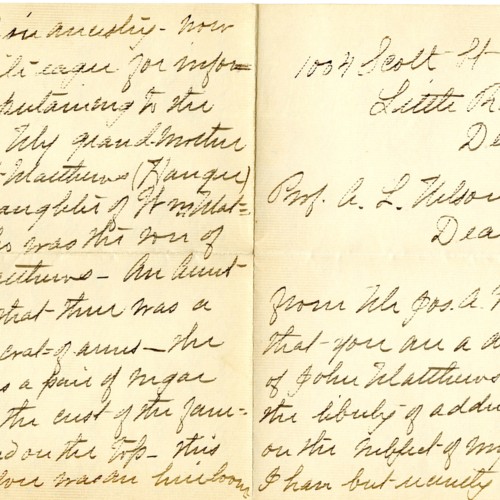 in ancestry - now
eager for infor=
pertaining to the
My grandmother
Matthews (Hanger)
daughter of Wm Mat=
was the son of
Matthews - An aunt
that there was a
coat-of-arms - the
s a pair of sugar
the crest of the fam=
on the top - this
was an heirloom
1004 Scott St
Little R
De
Prof. A. L. Nelson
Dea
from Mr Jos. A.
that you are a d
of John Matthews
the liberty of addre
on the subject of m
I have but recently